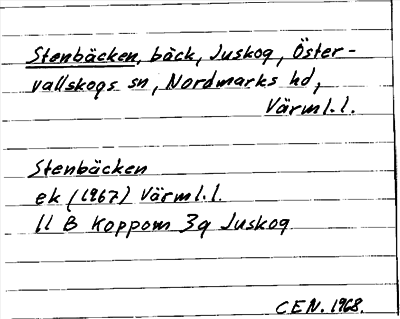 Stenbäcken, bäck, Juskog, Öster-
vallskogs sn, Nordmarks hd,
Värml.l.
Stenbäcken
ek (1967) Värml.l.
11 B Koppom 3g Juskog
CEN. 1968.